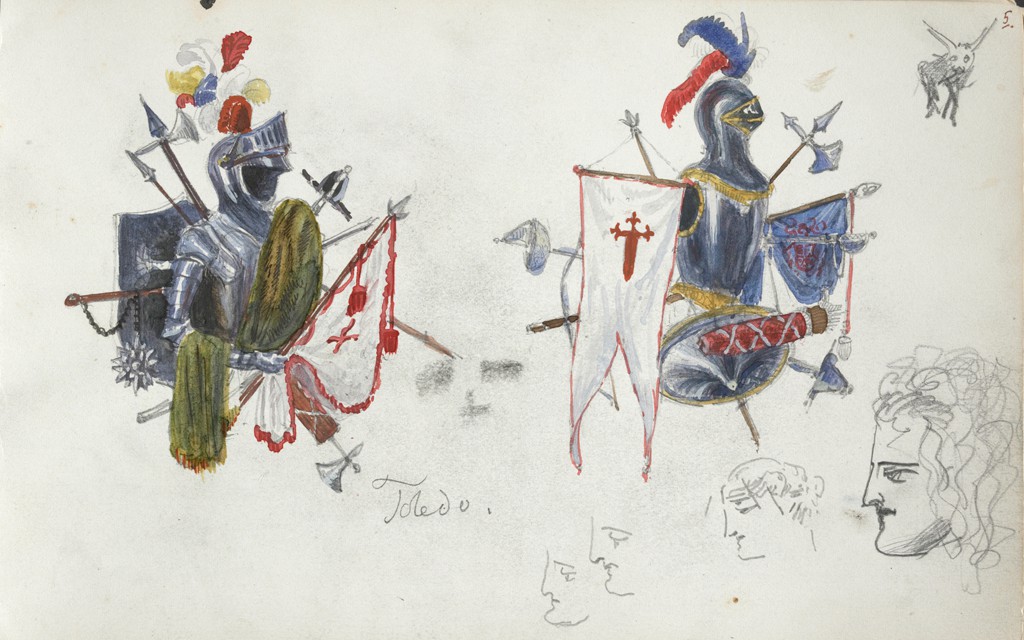 5.
Toledo.